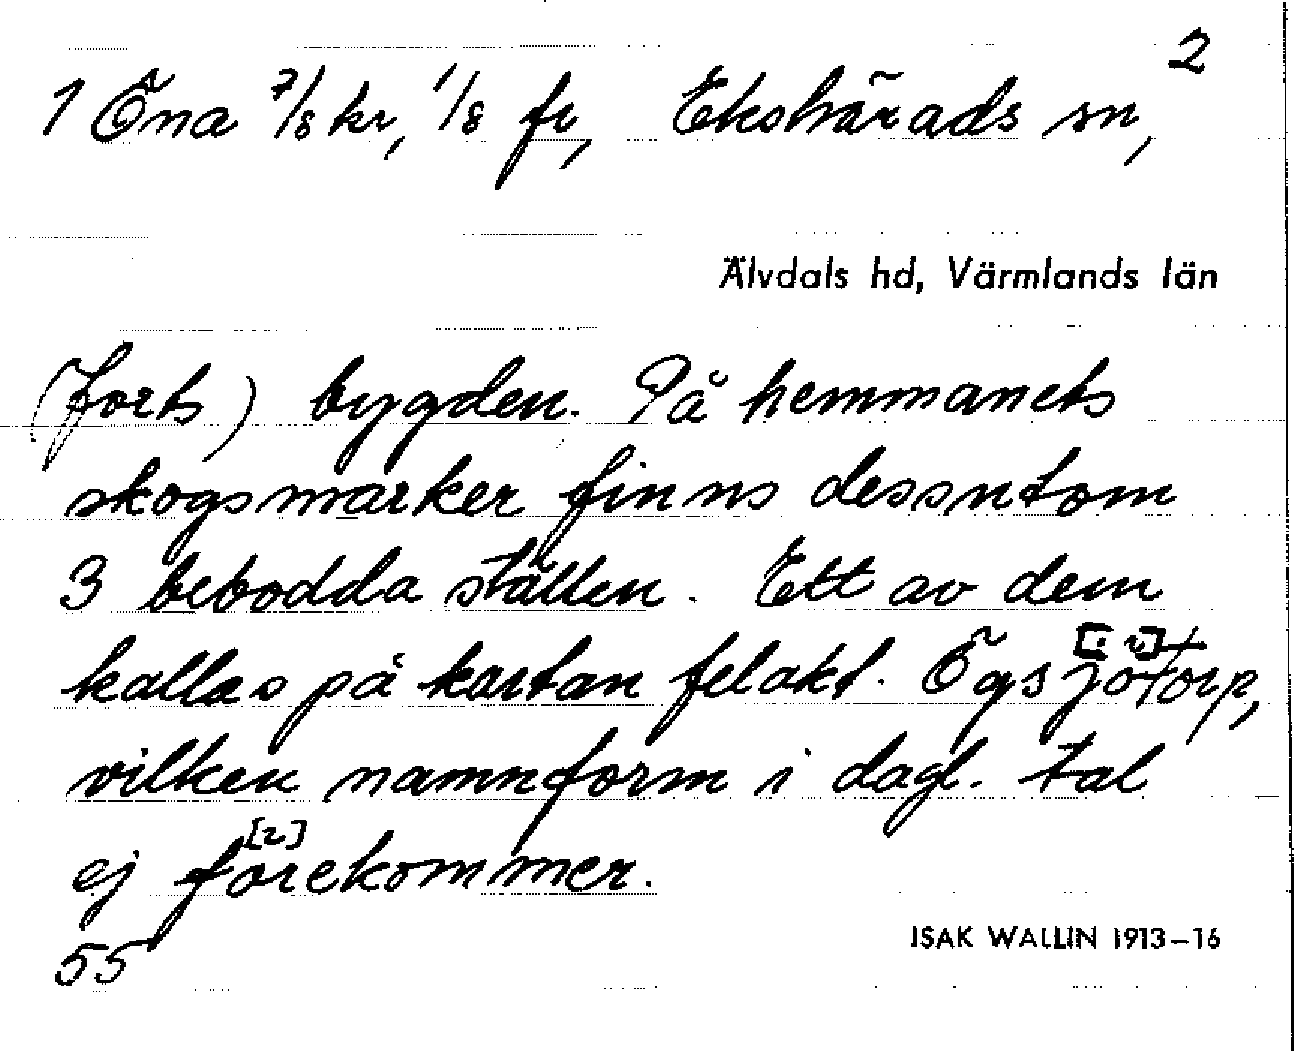 2
1 Öna 7/8 kr, 1/8 fr, Ekshärads sn,
Älvdals hd, Värmlands län
(forts) bygden. På hemmanets
skogsmarker finns dessutom
3 bebodda ställen. Ett av dem
kallas på kartan felakt. Ögsjötorp,
vilken namnform i dagl. tal
ej förekommer.
55
ISAK WALLIN 1913–16